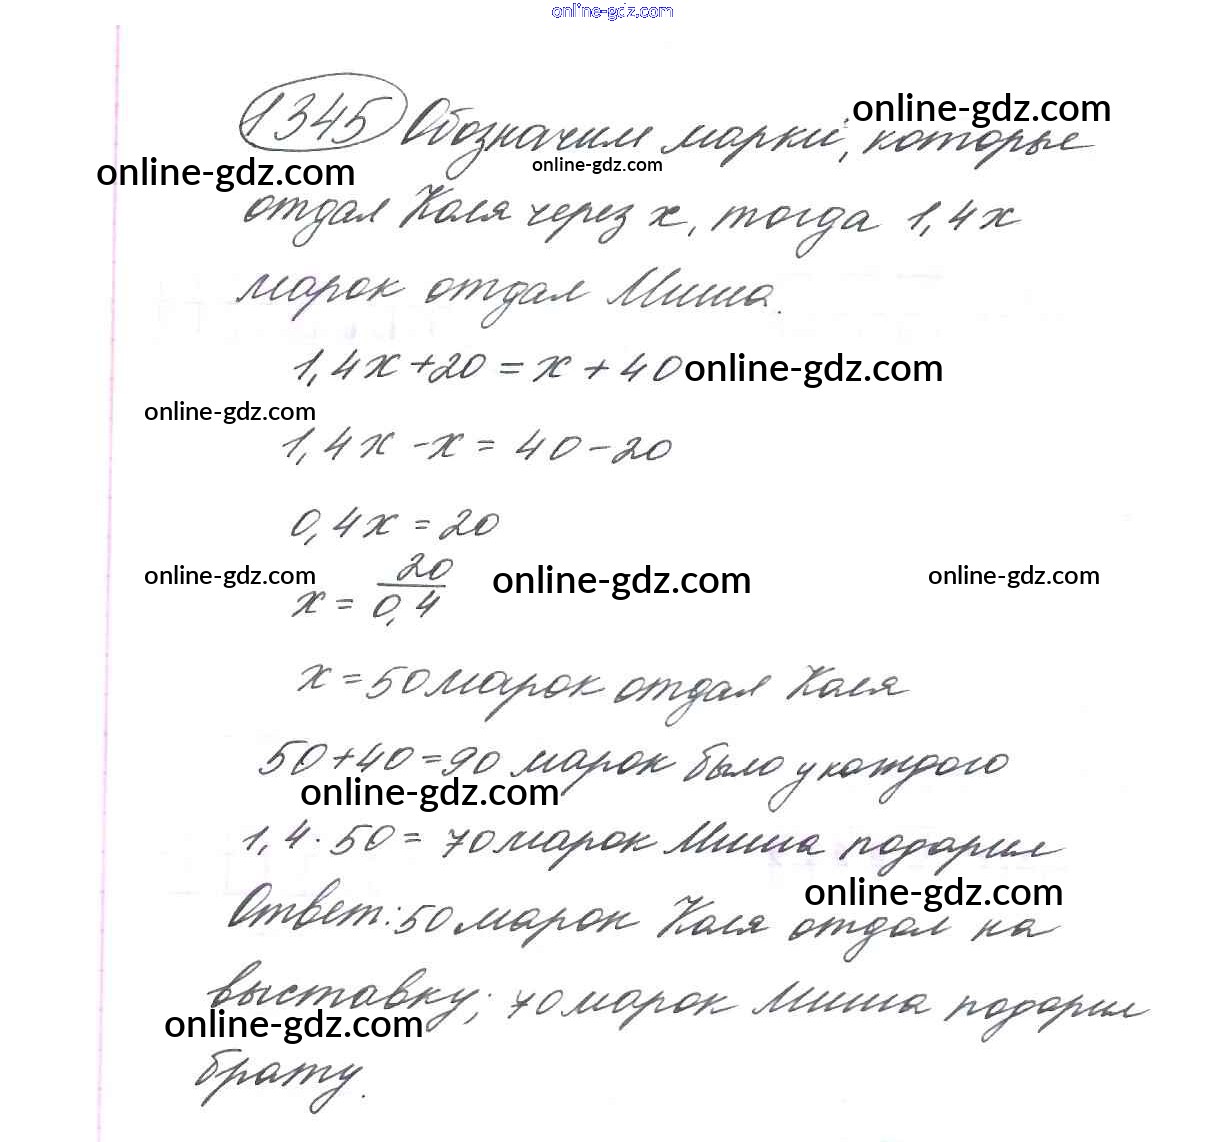 online-gdz.com
1345 Обозначим марки, которые
online-gdz.com
online-gdz.com
online-gdz.com
отдал Коля через х, тогда 1,4х
марок отдал Миша.
1,4х + 20 = х + 40
online-gdz.com
online-gdz.com
1,4х - х = 40 - 20
0,4х = 20
х = 20/0,4
online-gdz.com
online-gdz.com
online-gdz.com
х = 50 марок отдал Коля
50 + 40 = 90 марок было у каждого
online-gdz.com
1,4 · 50 = 70 марок Миша подарил
online-gdz.com
Ответ: 50 марок Коля отдал на
выставку; 70 марок Миша подарил
online-gdz.com
брату.